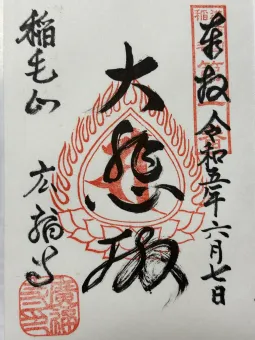 奉拝 令和五年六月七日
大悲殿
稲毛山 広福寺